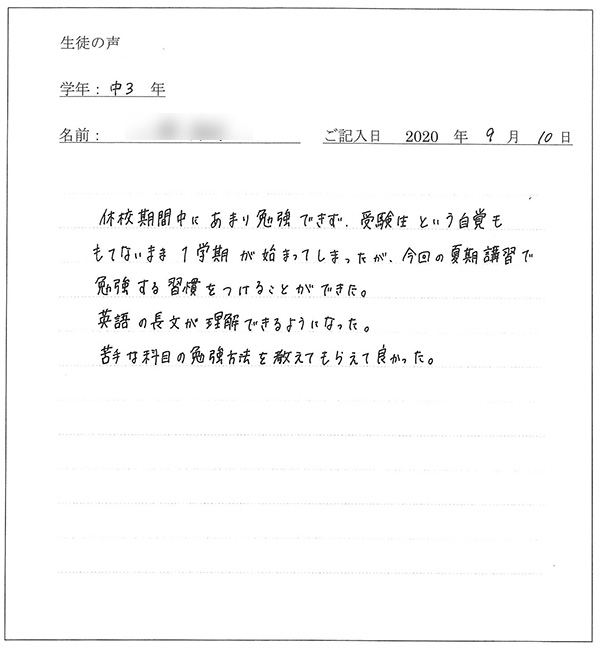 生徒の声
学年：中3 年
名前：
ご記入日 2020 年 9 月 10 日
休校期間中にあまり勉強できず、受験生という自覚も
もてないまま 1学期が始まってしまったが、今回の夏期講習で
勉強する習慣をつけることができた。
英語の長文が理解できるようになった。
苦手な科目の勉強方法を教えてもらえて良かった。